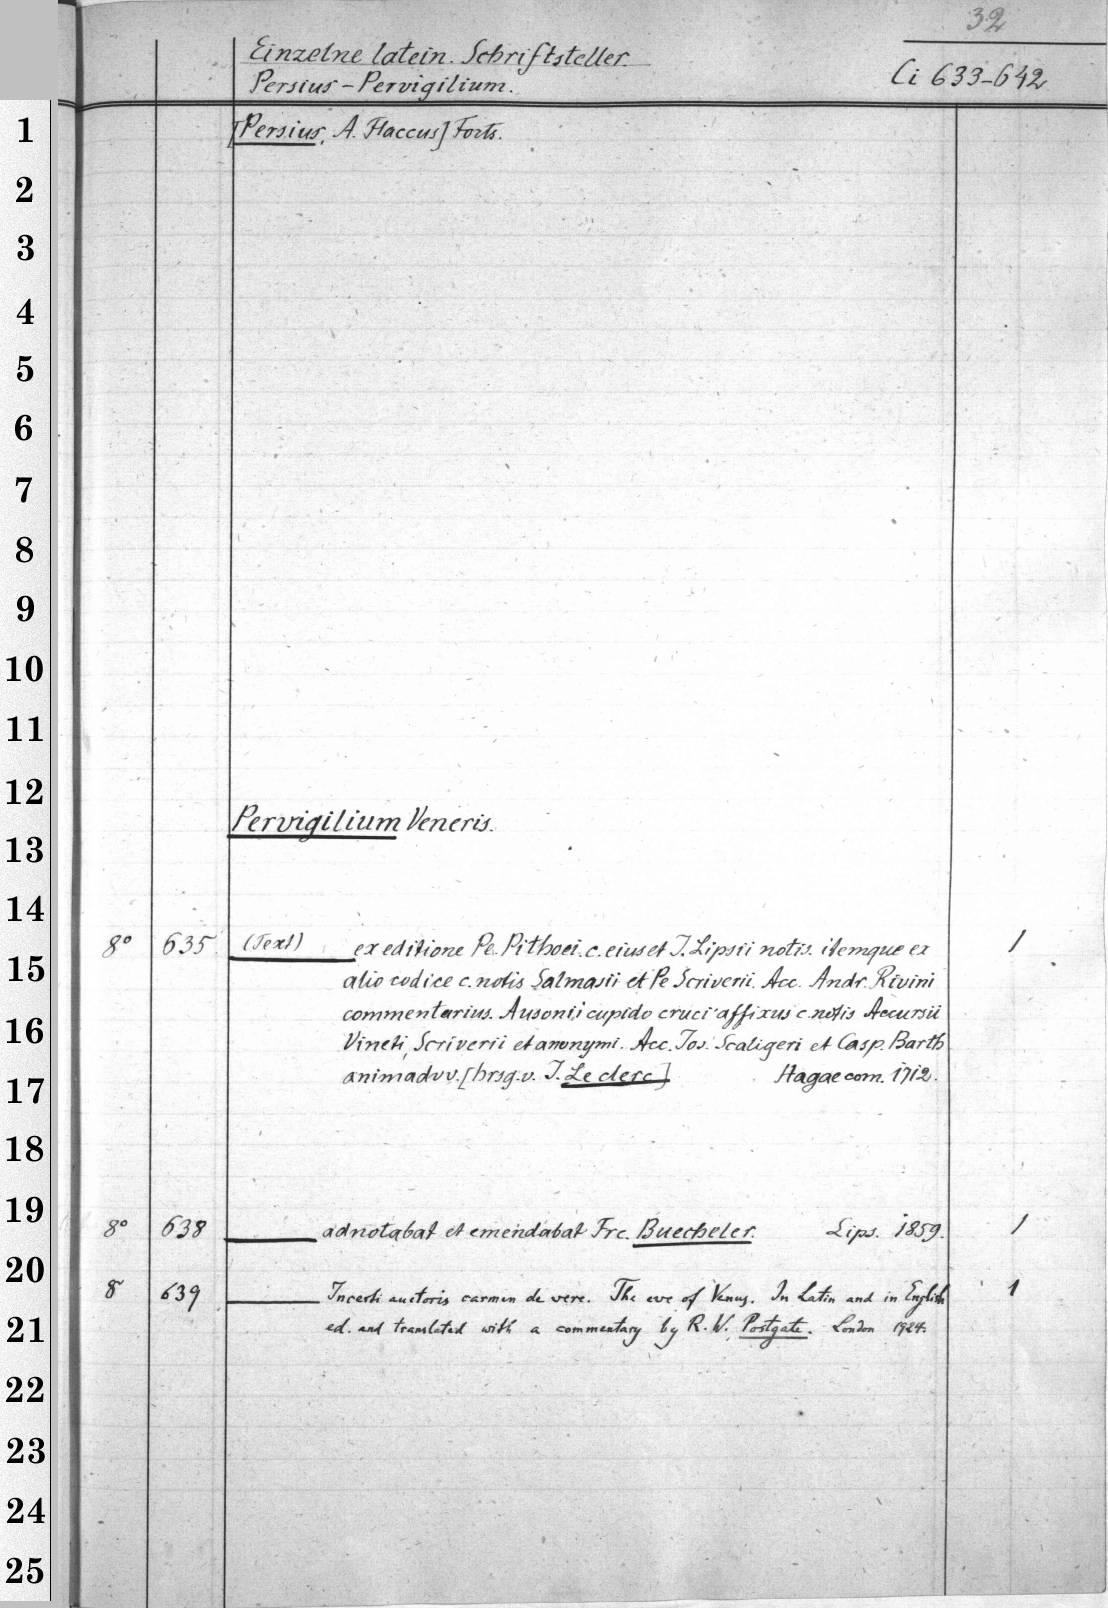 32
Einzelne latein. Schriftsteller.
Persius - Pervigilium.
Ci 633-642
[Persius, A. Flaccus] Forts.
Pervigilium Veneris.
8° 635 (Text) ex editione Pe. Pithoei. c. eius et J. Lipsii notis. itemque ex 1
alio codice c. notis Salmasii et Pe Scriverii. Acc. Andr. Rivini
commentarius. Ausonii cupido cruci affixus c. notis Accursii
Vineti, Scriverii et anonymi. Acc. Jos. Scaligeri et Casp. Barth
animadvv. [hrsg. v. J. Le clerc] Hagae com. 1712.
8° 638 adnotabat et emendabat Frc. Buecheler. Lips. 1859. 1
8° 639 Incerti auctoris carmen de vere. The eve of Venus. In Latin and in English 1
ed. and translated with a commentary by R. W. Postgate. London 1924.
1
2
3
4
5
6
7
8
9
10
11
12
13
14
15
16
17
18
19
20
21
22
23
24
25